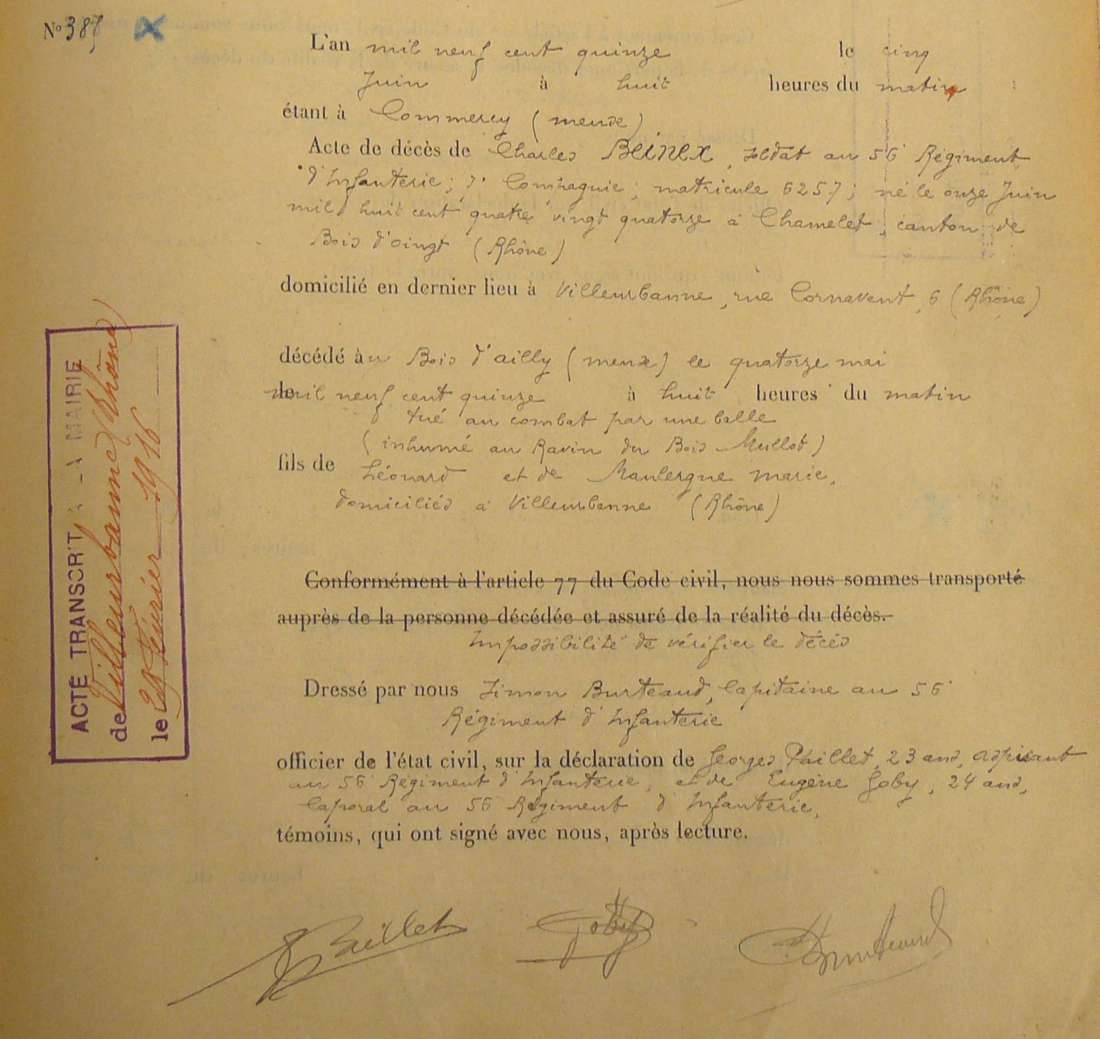 N° 387
L'an mil neuf cent quinze le cinq
Juin à huit heures du matin
étant à Commercy (meuse)
Acte de décès de Charles BEINEX, soldat au 56 Régiment
d'Infanterie; 7e Compagnie; matricule 6257; né le onze Juin
mil huit cent quatre vingt quatorze à Chamelet, canton de
Bois d'oingt (Rhône)
domicilié en dernier lieu à Villeurbanne, rue Cornavent, 6 (Rhône)
décédé au Bois d'ailly (meuse) le quatorze mai
mil neuf cent quinze à huit heures du matin
tué au combat par une balle
(inhumé au Ravin du Bois Mullot)
fils de Léonard et de Maulergne marie,
domiciliés à Villeurbanne (Rhône)
Conformément à l'article 77 du Code civil, nous nous sommes transporté
auprès de la personne décédée et assuré de la réalité du décès.
Impossibilité de vérifier le décès
Dressé par nous Simon Burteaud, Capitaine au 56
Régiment d'Infanterie
officier de l'état civil, sur la déclaration de Georges Paillet, 23 ans, aspirant
au 56 Régiment d'Infanterie, et de Eugène Goby, 24 ans,
Caporal au 56 Régiment d'Infanterie,
témoins, qui ont signé avec nous, après lecture.
Paillet Goby Burteaud
ACTE TRANSCRIT A LA MAIRIE
de Villeurbanne (Rhône)
le 29 Février 1916